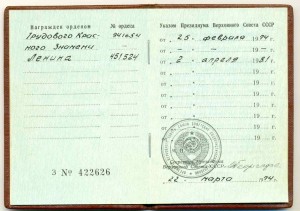 Награжден орденом № ордена
Трудового Крас-
ного Знамени
Ленина 451524
З № 422626
Указом Президиума Верховного Совета СССР
от „ 25 " февраля 1974 г.
от „ – " – 19 – г.
от „ 2 " апреля 1981 г.
от „ " 19 г.
от „ " 19 г.
от „ " 19 г.
от „ " 19 г.
Секретарь Президиума
Верховного Совета СССР
„ 22 " марта 1974 г.